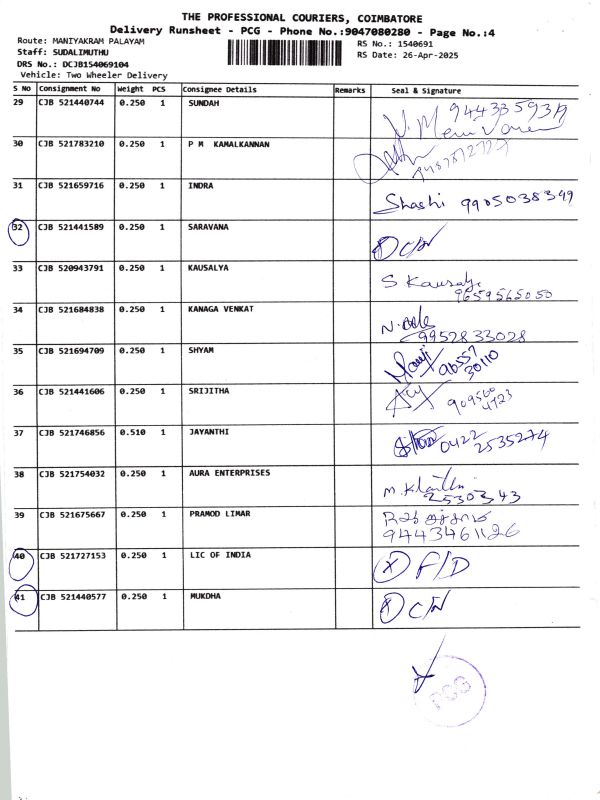 THE PROFESSIONAL COURIERS, COIMBATORE
Delivery Runsheet - PCG - Phone No.:9047080280 - Page No.:4
Route: MANIYAKRAM PALAYAM
RS No.: 1540691
Staff: SUDALIMUTHU
RS Date: 26-Apr-2025
DRS No.: DCJB154069104
Vehicle: Two Wheeler Delivery
S No Consignment No Weight PCS Consignee Details Remarks Seal & Signature
29 CJB 521440744 0.250 1 SUNDAH
30 CJB 521783210 0.250 1 P M KAMALKANNAN
31 CJB 521659716 0.250 1 INDRA Shashi 9905038349
32 CJB 521441589 0.250 1 SARAVANA X C/N
33 CJB 520943791 0.250 1 KAUSALYA S Kausalya
9659565050
34 CJB 521684838 0.250 1 KANAGA VENKAT
9952833028
35 CJB 521694709 0.250 1 SHYAM 96557
30110
36 CJB 521441606 0.250 1 SRIJITHA 909560
4723
37 CJB 521746856 0.510 1 JAYANTHI 0422
2535274
38 CJB 521754032 0.250 1 AURA ENTERPRISES
2530343
39 CJB 521675667 0.250 1 PRAMOD LIMAR
9443461126
40 CJB 521727153 0.250 1 LIC OF INDIA X F/D
41 CJB 521440577 0.250 1 MUKDHA X C/N
PCG